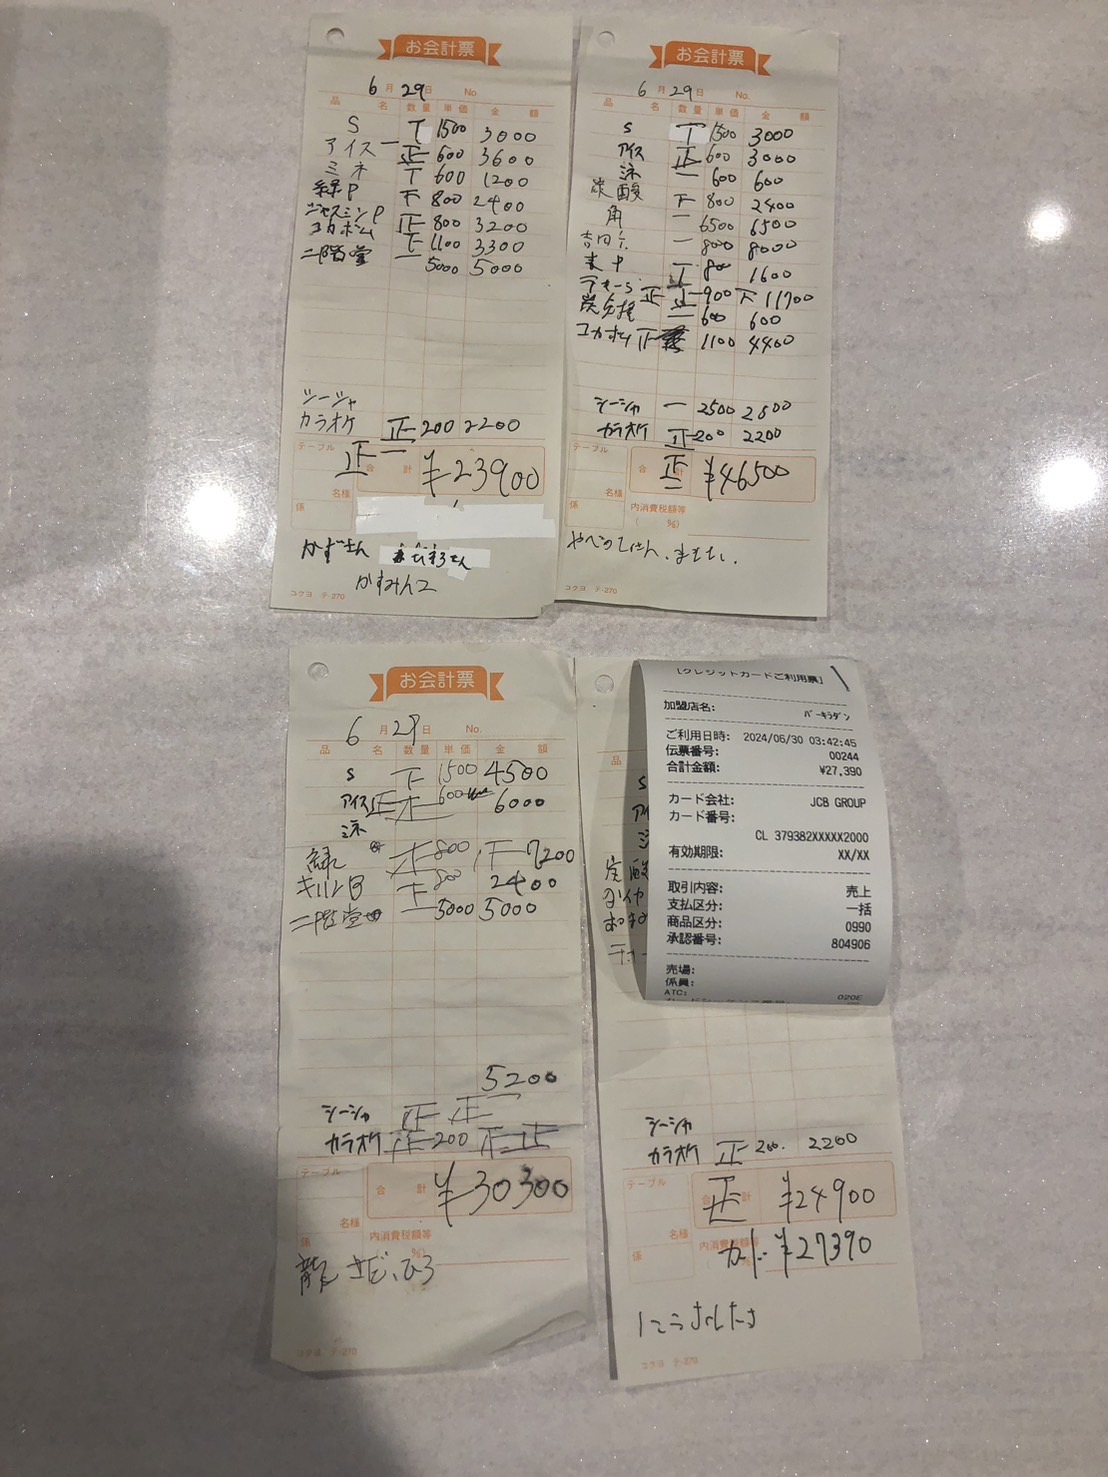 お会計票
6月29日 No.
品名 数量 単価 金額
S T 1500 3000
アイス 正一 600 3600
ミネ T 600 1200
緑P 下 800 2400
ジャスミンP 正 800 3200
コカボム 下 1100 3300
二階堂 一 5000 5000
シーシャ
カラオケ 正正一 200 2200
テーブル 正 合計 ¥23900
名様
係
かずさん
かすみんこ
コクヨ テ-270
お会計票
6月29日 No.
品名 数量 単価 金額
S T 1500 3000
アイス 正 600 3000
ミネ 一 600 600
炭酸 下 800 2400
角 一 6500 6500
一 8000 8000
T 800 1600
正 正 900 下 11700
一 600 600
コカボム 1100 4400
シーシャ 一 2500 2500
カラオケ 正 200 2200
テーブル 合計 正 ¥46500
名様
係 内消費税額等
( %)
お会計票
6月29日 No.
品名 数量 単価 金額
S 下 1500 4500
アイス 正 600 6000
ミネ
緑 800 7200
キリンB 下 800 2400
二階堂 一 5000 5000
5200
シーシャ 正 正
カラオケ 正 200 正 正
テーブル 合計 ¥30300
名様
係 内消費税額等
%)
龍
コクヨ テ-270
[クレジットカードご利用票]
加盟店名: バーキラダン
ご利用日時: 2024/06/30 03:42:45
伝票番号: 00244
合計金額: ¥27,390
カード会社: JCB GROUP
カード番号:
CL 379382XXXXX2000
有効期限: XX/XX
取引内容: 売上
支払区分: 一括
商品区分: 0990
承認番号: 804906
売場:
係員:
ATC: 020E
品
S
シーシャ
カラオケ 正 200. 2200
テーブル 合計 ¥24900
名様 内消費税額等 カード ¥27390
係
コクヨ テ-270